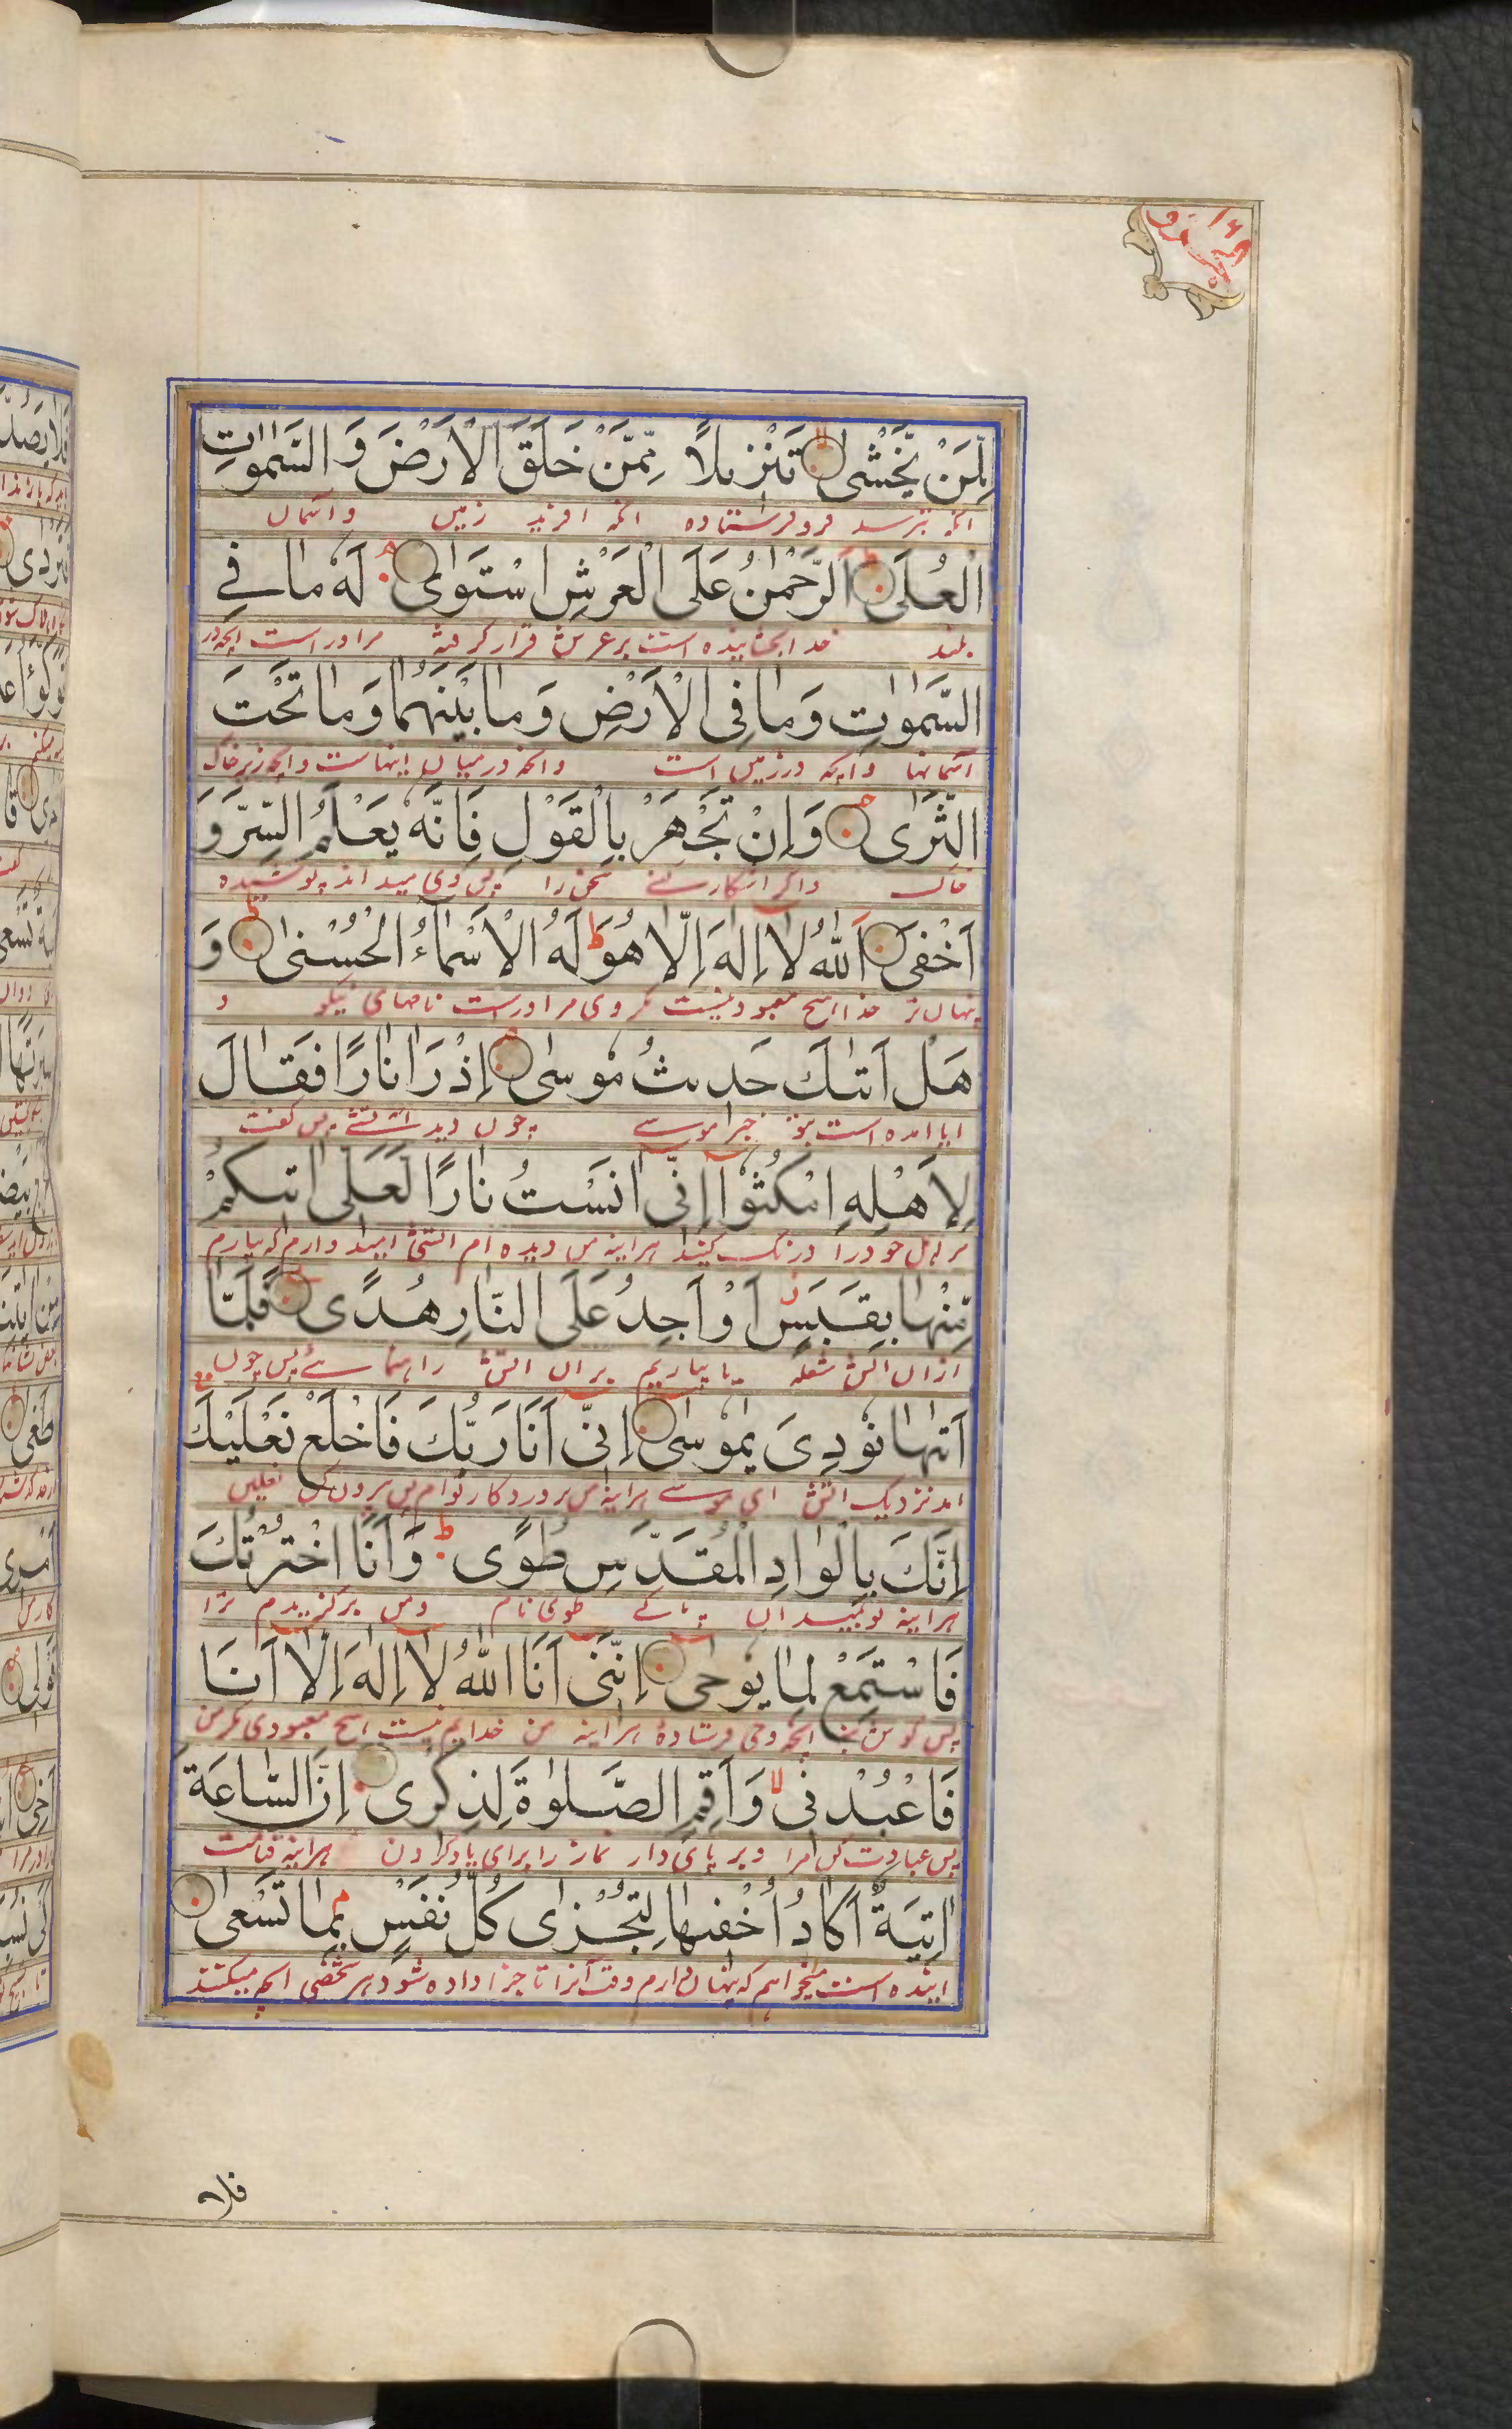 لِّمَنْ يَّخْشٰى تَنْزِيلًا مِّمَّنْ خَلَقَ الْاَرْضَ وَ السَّمٰوٰتِ
انكه بترسد فرو فرستاده انكه افريد زمين و اسمان
الْعُلٰى اَلرَّحْمٰنُ عَلَى الْعَرْشِ اسْتَوٰى لَهٗ مَا فِي
بلند خدا بخشاينده است بر عرش قرار كرفته مر اوراست انچه در
السَّمٰوٰتِ وَمَا فِى الْاَرْضِ وَمَا بَيْنَهُمَا وَمَا تَحْتَ
اسمانها وانچه در زمين است وانچه درميان اينهاست وانچه زير خاك
الثَّرٰى وَاِنْ تَجْهَرْ بِالْقَوْلِ فَاِنَّهٗ يَعْلَمُ السِّرَّ وَ
خاك واكر اشكارا كنى سخن را پس وى ميداند پوشيده
اَخْفٰى اَللّٰهُ لَا اِلٰهَ اِلَّا هُوَ لَهُ الْاَسْمَاءُ الْحُسْنٰى وَ
پنهان تر خدا هيچ معبود نيست مكر وى مر اوراست نامهاى نيكو و
هَلْ اَتٰىكَ حَدِيثُ مُوسٰى اِذْ رَاٰ نَارًا فَقَالَ
ايا امده است بتو خبر موسے چون ديد اتشے پس كفت
لِاَهْلِهِ امْكُثُوْا اِنِّى اٰنَسْتُ نَارًا لَعَلِّى اٰتِيكُمْ
مر اهل خود را درنك كنيد هراينه من ديده ام اتش اميد دارم كه بيارم
مِّنْهَا بِقَبَسٍ اَوْ اَجِدُ عَلَى النَّارِ هُدًى فَلَمَّا
ازان اتش شعله يا بيابم بران اتش راهنمائے پس چون
اَتٰىهَا نُوْدِىَ يٰمُوسٰى اِنِّى اَنَا رَبُّكَ فَاخْلَعْ نَعْلَيْكَ
امد نزديك اتش اى موسے هراينه من پروردكار توام پس بيرون كن نعلين
اِنَّكَ بِالْوَادِ الْمُقَدَّسِ طُوًى وَاَنَا اخْتَرْتُكَ
هراينه تو بميدان پاكے طوى نام ومن بركزيدم ترا
فَاسْتَمِعْ لِمَا يُوحٰى اِنَّنِى اَنَا اللّٰهُ لَا اِلٰهَ اِلَّا اَنَا
پس كوش كن انچه وحى فرستاده هراينه من خدايم نيست هيچ معبودى مكر من
فَاعْبُدْنِى وَاَقِمِ الصَّلٰوةَ لِذِكْرِى اِنَّ السَّاعَةَ
پس عبادت كن مرا و بر پاى دار نماز را براى ياد كردن هراينه قيامت
اٰتِيَةٌ اَكَادُ اُخْفِيهَا لِتُجْزٰى كُلُّ نَفْسٍ بِمَا تَسْعٰى
اينده است ميخواهم كه پنهان دارم وقت انرا تا جزا داده شود هر شخصى انچه ميكند
فلا